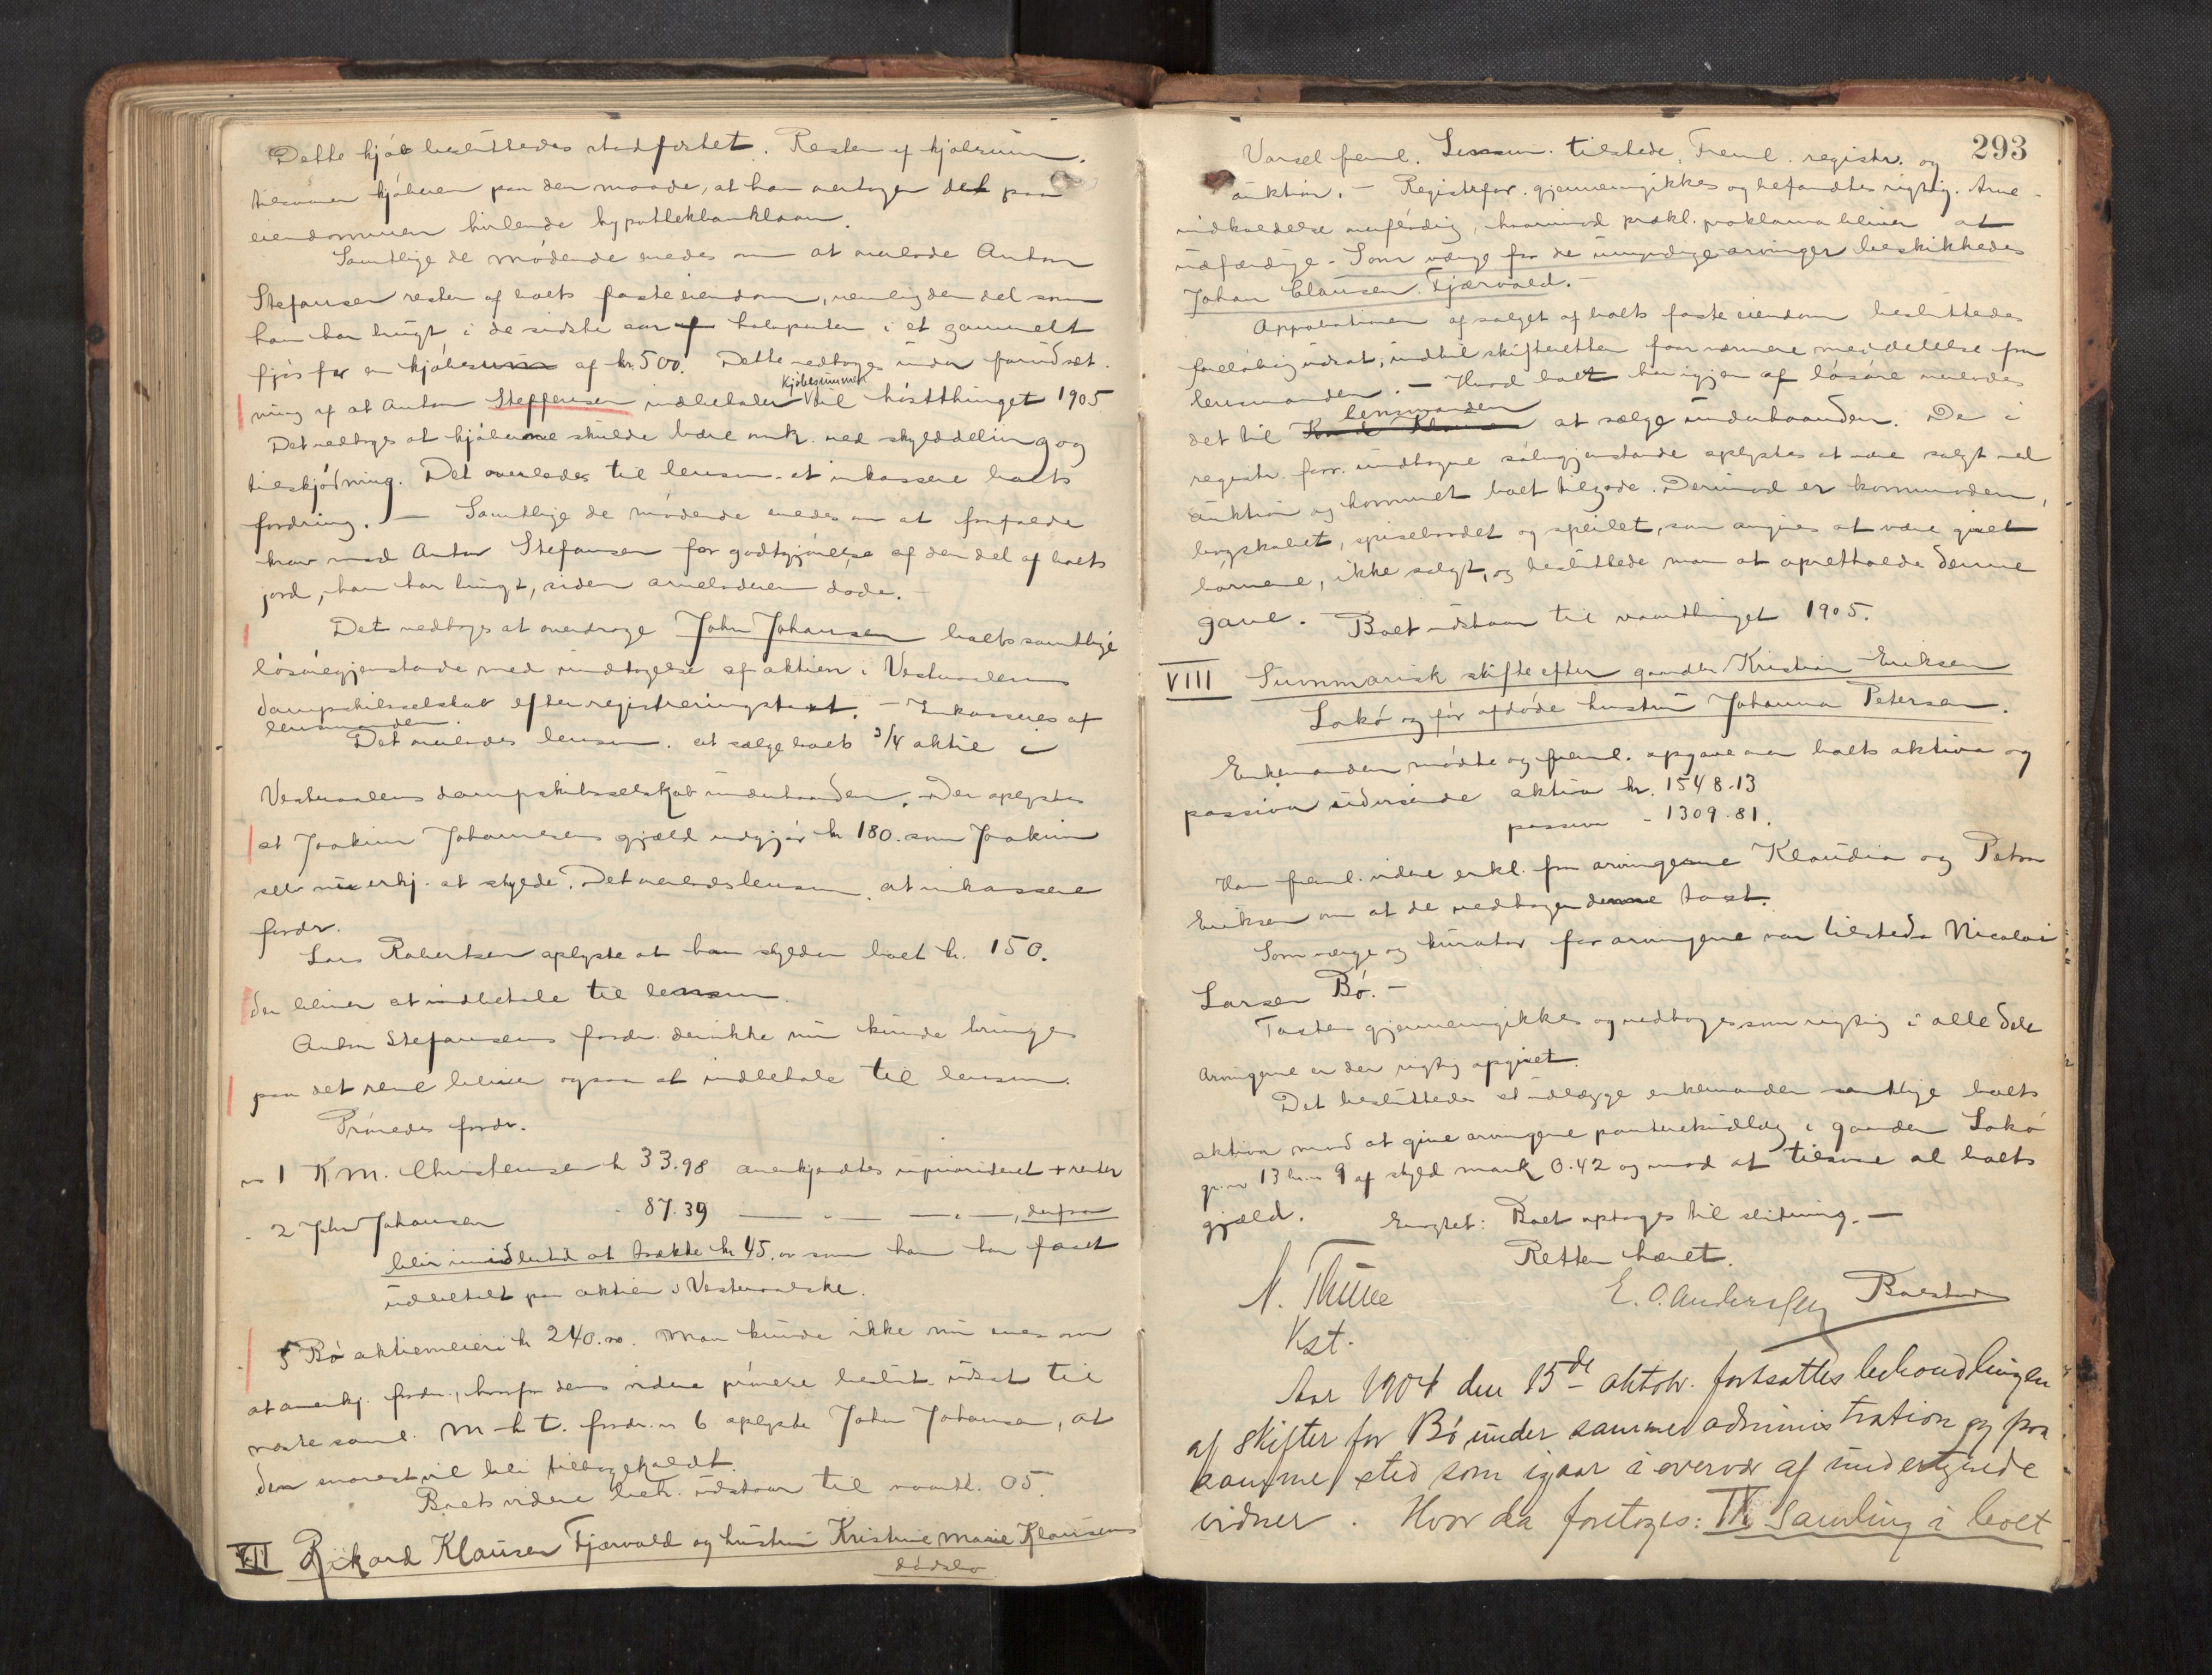 Dette kjøb besluttedes stadfæstet. Resten af kjøbesum.
tilsvarer kjøberen paa den maade, at han overtager det paa
eiendommen hvilende hypothekbanklaan.
Samtlige de mødende enedes om at overlade Anton
Stefansen resten af boets faste eiendom, nemlig den del som
han har brugt i de sidste aar halvparten i et gammelt
fjøs for en kjøbesum af kr. 500. Dette vedtoges under forudsæt-
ning af at Anton Steffensen indbetaler kjøbesummen til høstthinget 1905
Det vedtoges at kjøberne skulde bære omk. ved skylddeling og
tilskjødning. Det overlodes til lensm. at inkassere boets
fordring. — Samtlige de mødende enedes om at frafalde
krav mod Anton Stefansen for godtgjørelse af den del af boets
jord, han har brugt, siden arveladeren døde. —
Det vedtoges at overdrage John Johansen boets samtlige
løsøregjenstande med undtagelse af aktien i Vesteraalens
dampskibsselskab efter registreringstaxt. — Inkasseres af
lensmanden.
Det overlodes lensm. at sælge boets 3/4 aktie i
Vesteraalens dampskibsselskab underhaanden. Der oplystes
at Joakim Johannesens gjæld udgjør kr 180. som Joakim
selv nu erkj. at skylde. Det overlodes lensm. at inkassere
fordr.
Lars Robertsen oplyste at han skylder boet kr. 150.
der bliver at indbetale til lensm.
Anton Stefansens fordr. der ikke nu kunde bringes
paa det rene bliver ogsaa at indbetale til lensm.
Prøvedes fordr.
no 1 K M. Christensen kr 33.98 anerkjendtes uprioriteret + renter
- 2 John Johansen - 87.39 — " — — " —, derfra
blir imidlertid at trække kr 45.00 som han har faaet
udbetalt paa aktien i Vesteraalske.
- 5 Bø aktiemeieri kr 240.00. Man kunde ikke nu enes om
at anerkj. fordr., hvorfor dens videre prøvelse beslut. udsat til
næste saml. M-h t. fordr. no 6 oplyste John Johansen, at
den snarest vil bli tilbagekaldt.
Boets videre beh. udstaar til vaarth. 05.
VII Rikard Klausen Fjærvold og hustru Kristine Marie Klausens
dødsbo
293
Varsel freml. Lensm. tilstede. Freml. registr. og
auktion. — Registr.for. gjennemgikkes og befandtes rigtig. Arve-
indkaldelse overflødig, hvorimod prækl. proklama bliver at
udfærdige. - Som værge for de umyndige arvinger beskikkedes
Johan Clausen Fjærvold. —
Approbationen af salget af boets faste eiendom besluttedes
foreløbig udsat, indtil skifteretten faar nærmere meddelelse fra
lensmanden. — Hvad boet har igjen af løsøre overlodes
det til lensmanden at sælge underhaanden. De i
registr. forr. undtagne sølvgjenstande oplystes at være solgt ved
auktion og kommet boet tilgode. Derimod er kommoden,
bogskabet, spisebordet og speilet, som angives at være givet
børnene, ikke solgt, og besluttede man at opretholde denne
gave. Boet udstaar til vaarthinget 1905.
VIII Summarisk skifte efter gaardbr. Kristian Eriksen
Lokø og før afdøde hustru Johanna Petersen.
Enkemanden mødte og freml. opgave over boets aktiva og
passiva udvisende aktiva kr. 1548.13
passiva - 1309.81.
Han freml. videre erkl. fra arvingerne Klaudia og Petra
Eriksen om at de vedtager denne taxt.
Som værge og kurator for arvingerne var tilstede Nicolai
Larsen Bø. —
Taxten gjennemgikkes og vedtoges som rigtig i alle dele
Arvingerne er der rigtig opgivet.
Det besluttedes at udlægge enkemanden samtlige boets
aktiva mod at give arvingerne panteretsudlæg i gaarden Lokø
gr.no 13 br.no 9 af skyld mark 0.42 og mod at tilsvare al boets
gjæld. Eragtet: Boet optages til slutning. —
Retten hævet.
N. Thue E. O. Andersen Baashuus
Kst.
Aar 1904 den 15de oktobr. fortsattes behandlingen
af skifter for Bø under samme administration og paa
samme sted som igaar i overvær af undertegnede
vidner. Hvor da foretoges: IX Samling i boet